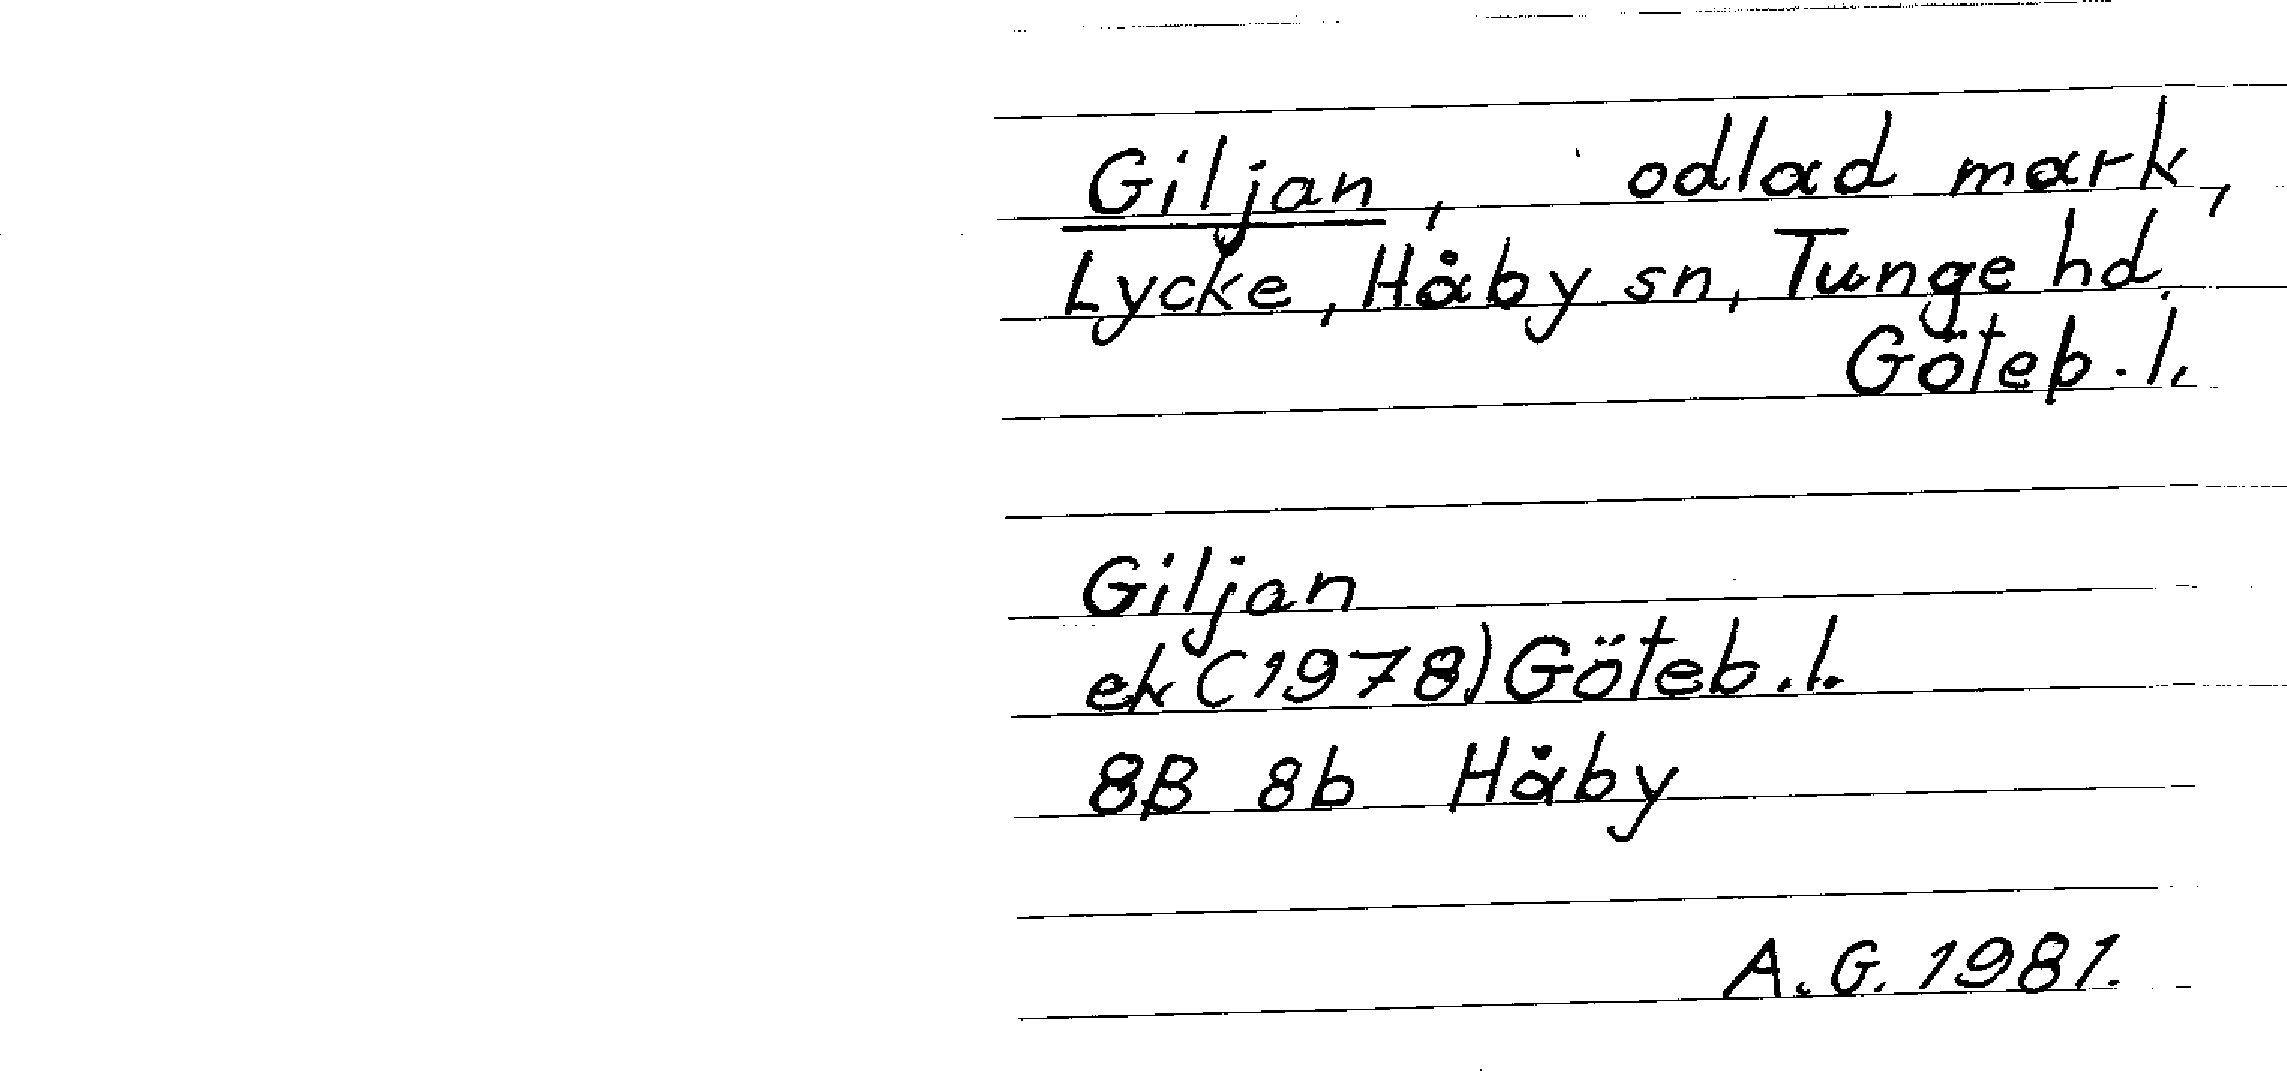 Giljan, odlad mark,
Lycke, Håby sn, Tunge hd.
Göteb. l.
Giljan
ek (1978) Göteb. l.
8B 8b Håby
A. G. 1981.